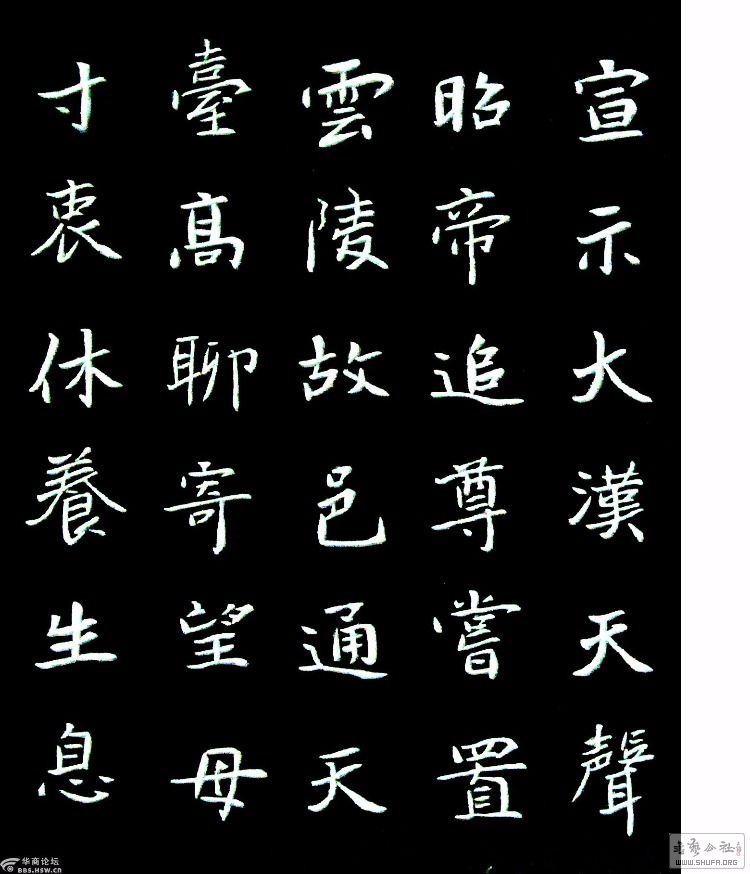 宣示大漢天聲
昭帝追尊嘗置
雲陵故邑通天
臺髙聊寄望母
寸衷休養生息
华商论坛
BBS.HSW.CN
WWW.SHUFA.ORG